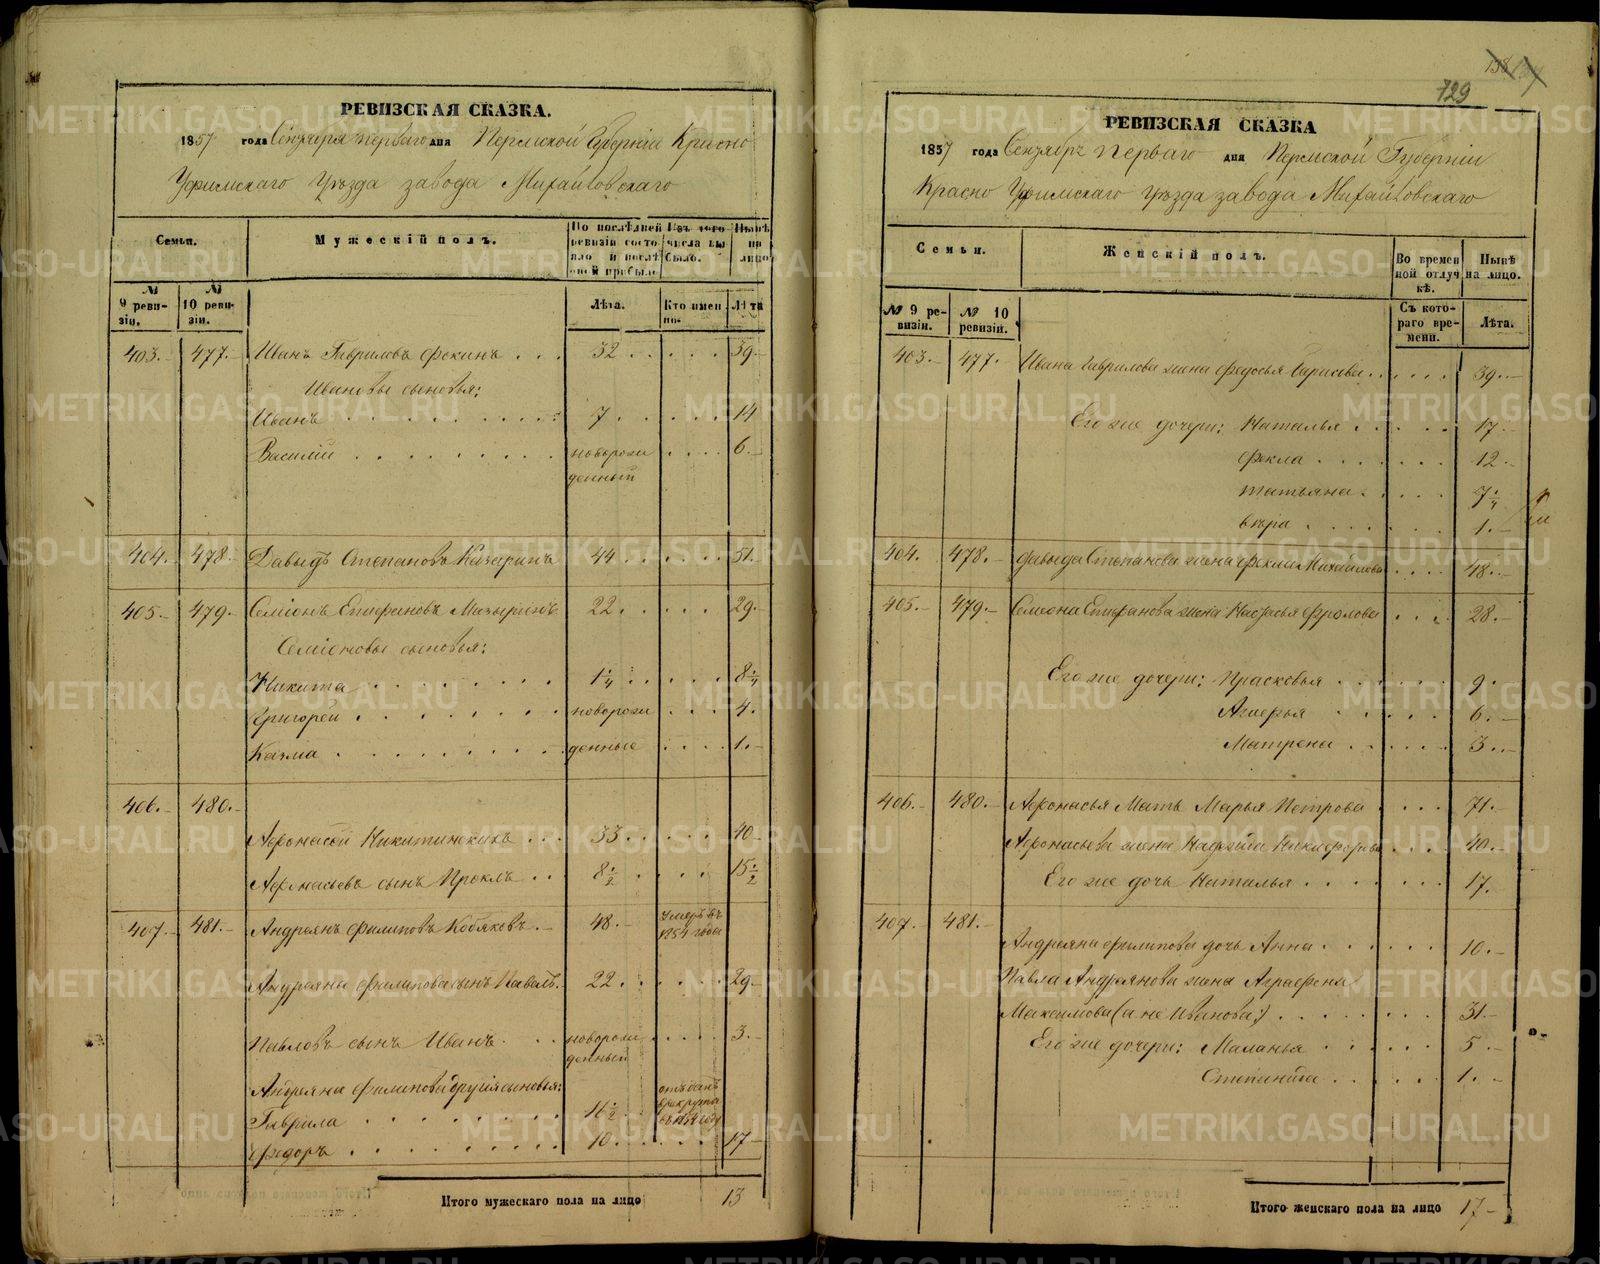 РЕВИЗСКАЯ СКАЗКА.
1857 года Сентября перваго дня Пермской Губерніи Красно
Уфимскаго Уѣзда завода Михайловскаго
Семьи.
Мужескій полъ.
По послѣдней ревизіи состояло и послѣ оной прибыло
Изъ того числа выбыло.
Нынѣ на лицо
№ 9 ревизіи.
№ 10 ревизіи.
Лѣта.
Кто именно.
Лѣта
403.- 477.- Иванъ Гавриловъ Фокинъ . . . 32 . . . . . 39.-
Ивановы сыновья:
Иванъ . . . . . . . . 7 . . . . . 14
Василій . . . . . . . . новорожденный . . . . 6.-
404.- 478.- Давыдъ Степановъ Казаринъ 44 . . . . . 51.-
405.- 479.- Семіонъ Епифановъ Мазыринъ 22 . . . . . 29.-
Семіоновы сыновья:
Никита . . . . . . . 1 1/4 . . . . . 8 1/4
Григорей . . . . . . . новорож . . . . 4.-
Казма . . . . . . . . денные . . . . 1.-
406.- 480.-
Афонасей Никитинскихъ . . . 33 . . . . . 40-
Афонасьевъ сынъ Проклъ . . . 8 1/2 . . . . 15 1/2
407.- 481.- Андреянъ Филиповъ Кобяковъ.- 48.- Умеръ въ 1854 года
Андреяна Филипова сынъ Павелъ. 22 . . . . . 29-
Павловъ сынъ Иванъ . . . новорожденный . . . . 3.-
Андреяна Филипова другія сыновья:
Гаврила . . . . . . . 16 1/2 отданъ в рекруты въ 1854 году
Федоръ . . . . . . . 10 . . . . . 17-
Итого мужескаго пола на лицо 13
729
РЕВИЗСКАЯ СКАЗКА
1857 года Сентябрь перваго дня Пермской Губерніи
Красно Уфимскаго Уѣзда завода Михайловскаго
Семьи.
Женскій полъ.
Во временной отлучкѣ.
Нынѣ на лицо.
№ 9 ревизіи.
№ 10 ревизіи.
Съ котораго времени.
Лѣта.
403.- 477. Ивана Гаврилова жена Федосья Борисова . . . . . 39.-
Его же дочери: Наталья . . . . . 17.-
Фекла . . . . . . 12.-
Татьяна . . . . . 7 1/4
Вѣра . . . . . . 1.-
404. 478.- Давыда Степанова жена Михайлова . . . . 48.-
405.- 479.- Семіона Епифанова жена Настасья Фролова . . . 28.-
Его же дочери: Прасковья . . . . . . 9.
. . . . . 6.-
Матрена . . . . . . 3.-
406.- 480.- Афонасья Мать Марья Петрова . . . . 71.-
Афонасьева жена Никифорова . . . . 40.-
Его же дочь Наталья . . . . . . . 17.
407.- 481.-
Андреяна Филипова дочь Анна . . . . . . 10.-
Павла Андреянова жена Аграфена
Максимова (а не Иванова) . . . . . . . 31.-
Его же дочери: Маланья . . . . . 5.-
Степанида . . . . . . 1.-
Итого женскаго пола на лицо 17-
METRIKI.GASO-URAL.RU